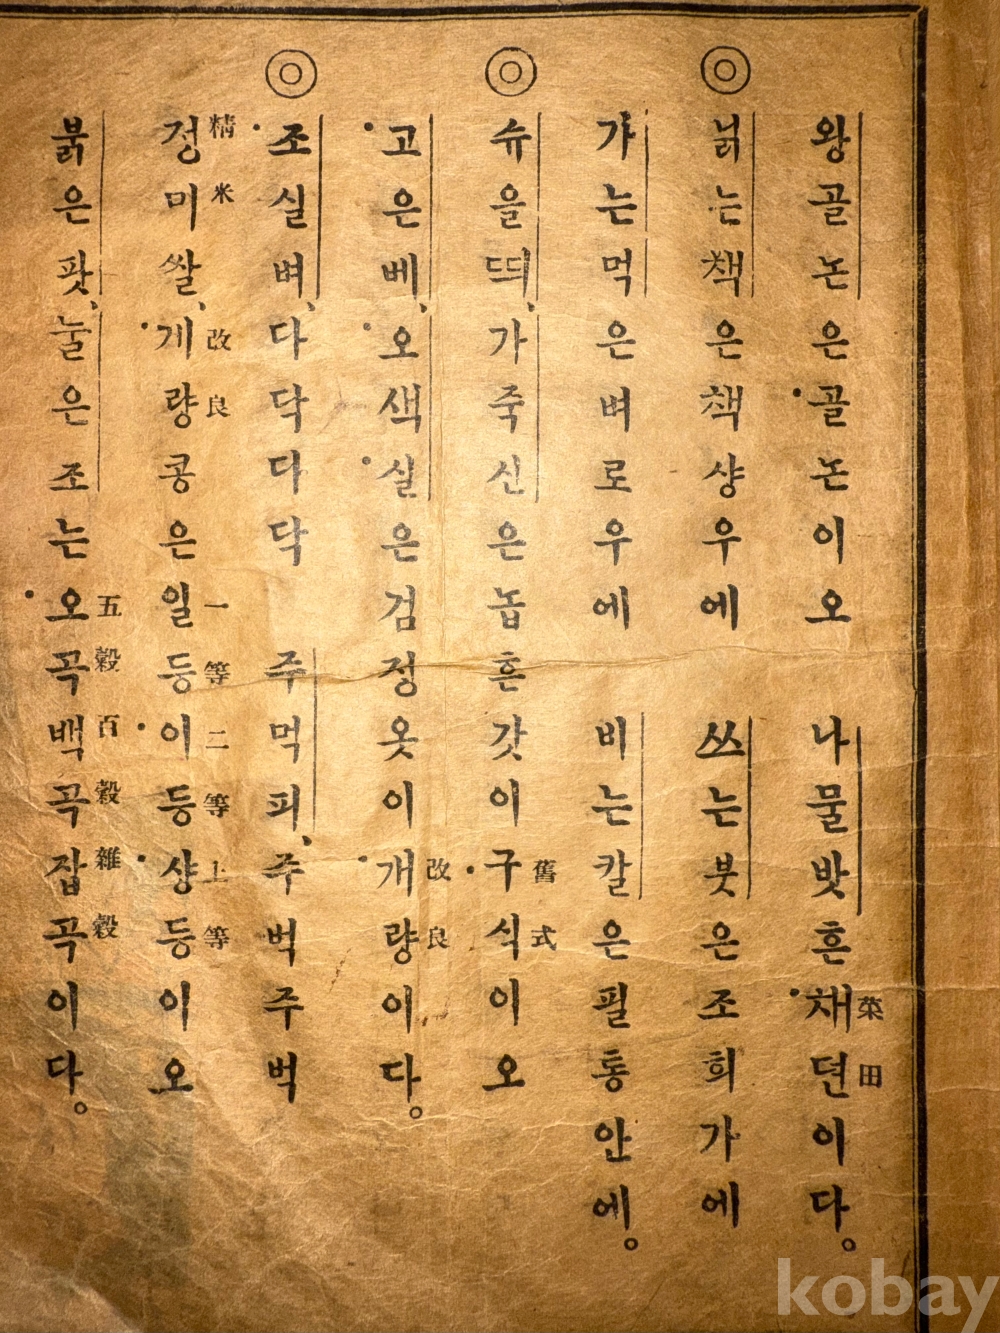 왕골논은골논이오 나물밧흔채뎐이다。
菜田
◎ 닑는책은책샹우에 쓰는붓은조희가에
가는먹은벼로우에 비는칼은필통안에。
◎ 슈을띄、가죽신은놉흔갓이구식이오
舊式
고은베、오색실은검정옷이개량이다。
改良
◎ 조실벼、다닥다닥 주먹피、주벅주벅
정미쌀、개량콩은일등이등샹등이오
精米 改良 一等二等上等
붉은팟、눌은조는오곡백곡잡곡이다。
五穀百穀雜穀
kobay